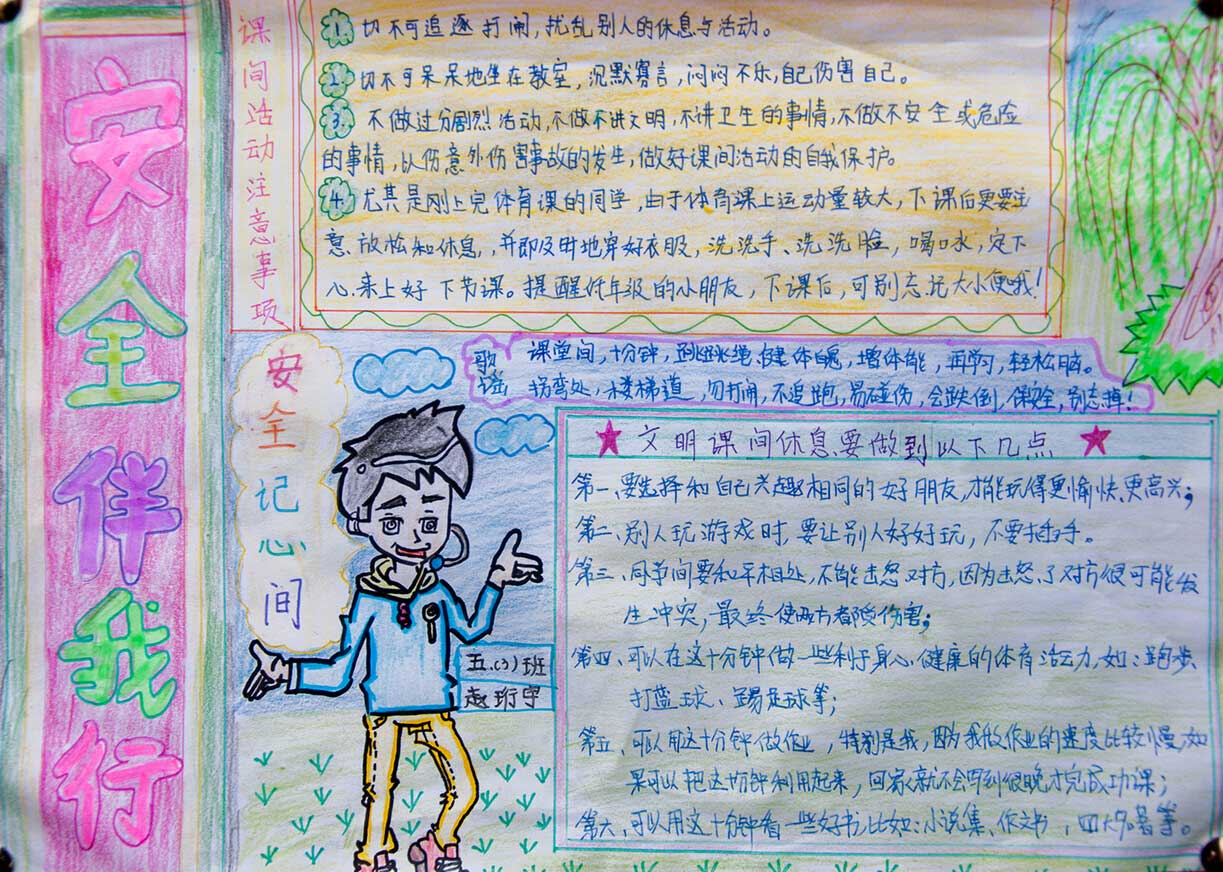 安全伴我行
课间活动注意事项
1. 切不可追逐打闹,扰乱别人的休息与活动。
2. 切不可呆呆地坐在教室,沉默寡言,闷闷不乐,自己伤害自己。
3. 不做过分剧烈活动,不做不讲文明,不讲卫生的事情,不做不安全或危险
的事情,以伤意外伤害事故的发生,做好课间活动的自我保护。
4. 尤其是刚上完体育课的同学,由于体育课上运动量较大,下课后更要注
意放松和休息,并即及时地穿好衣服,洗洗手、洗洗脸,喝口水,定下
心来上好下节课。提醒低年级的小朋友,下课后,可别忘记大小便哦!
歌谣
课堂间,十分钟,跳跳绳,健体魄,增体能,再学习,轻松脑。
拐弯处,楼梯道,勿打闹,不追跑,易碰伤,会跌倒,保安全,别忘掉!
安全记心间
文明课间休息要做到以下几点
第一、要选择和自己兴趣相同的好朋友,才能玩得更愉快、更高兴;
第二、别人玩游戏时,要让别人好好玩,不要插手。
第三、同学间要和平相处,不能击怒对方,因为击怒了对方很可能发
生冲突,最终使两方都受伤害;
第四、可以在这十分钟做一些利于身心健康的体育活动,如:跑步
打蓝球、踢足球等;
第五、可以用这十分钟做作业,特别是我,因为我做作业的速度比较慢,如
果可以把这十分钟利用起来,回家就不会写到很晚才完成功课;
第六、可以用这十分钟看一些好书,比如:小说集、作文书,四大名著等。
五.(3)班
赵珩宇